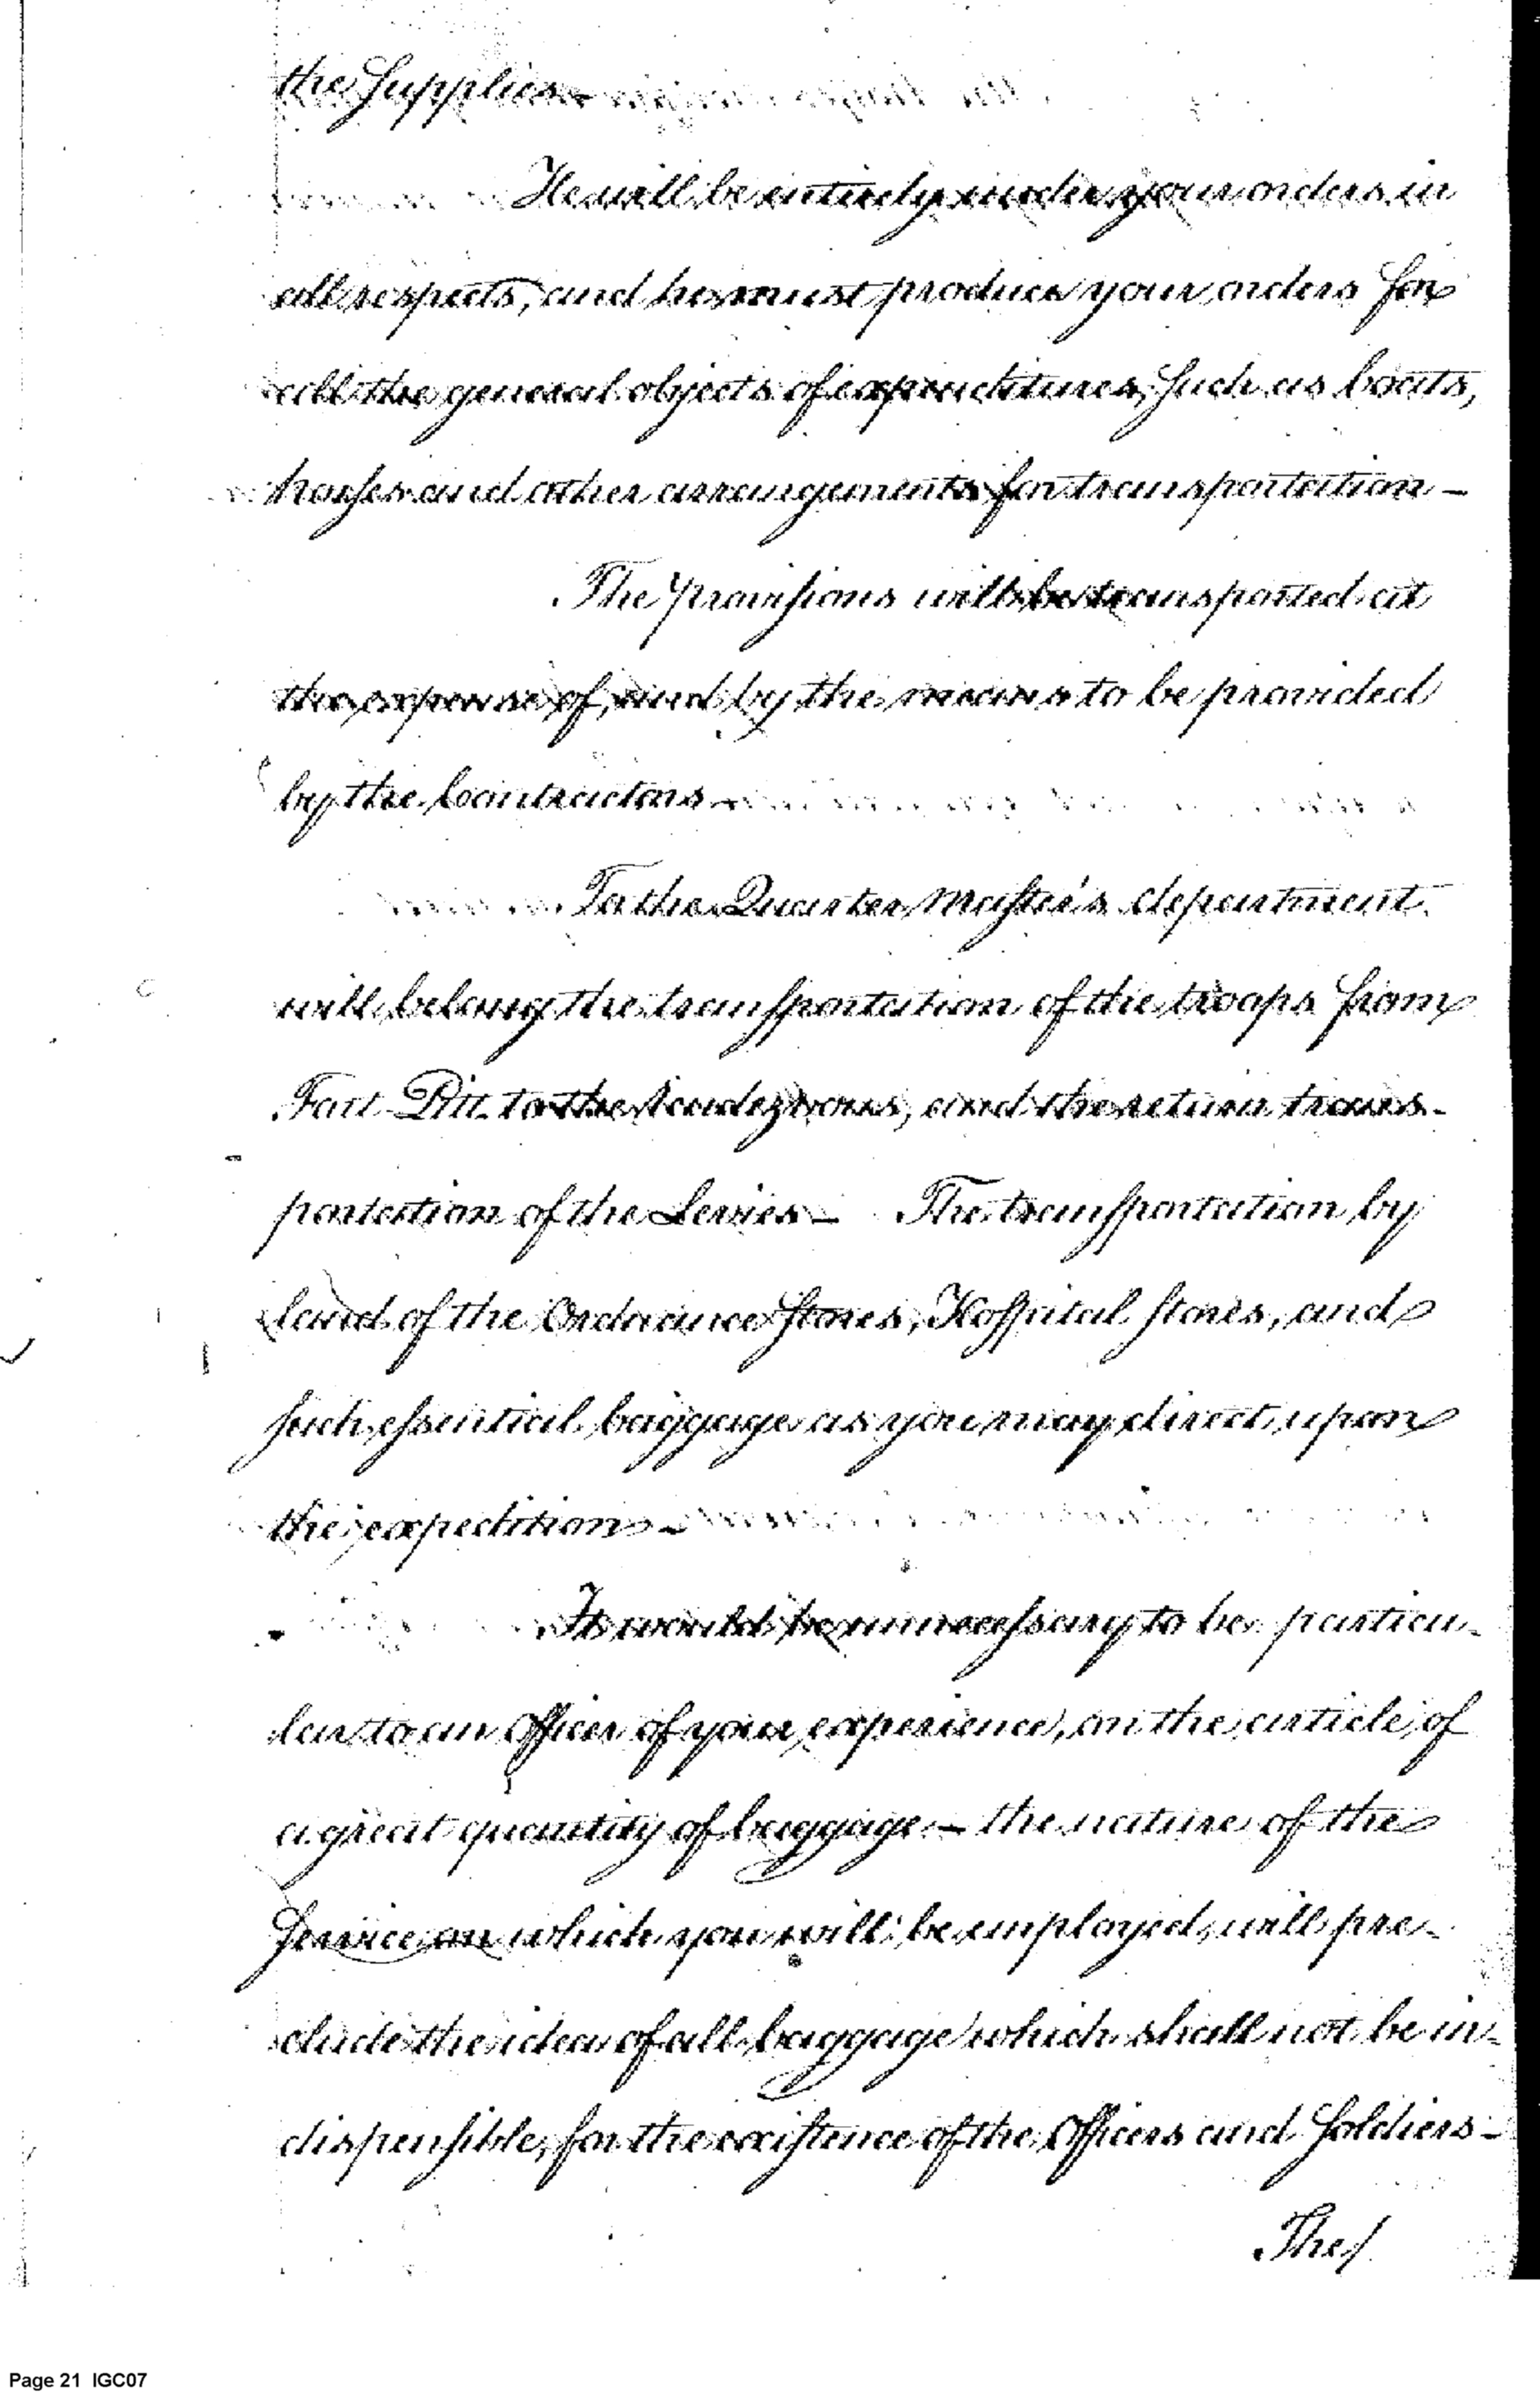 the Supplies—
He will be entirely under your orders in
all respects, and he must produce your orders for
all the general objects of expenditures, Such as boats,
horses and other arrangements for transportation—
The provisions will be transported at
the expense of, and by the means to be provided
by the Contractors—
To the Quarter Master's department
will belong the transportation of the troops from
Fort Pitt to the Rendezvous, and the return trans-
portation of the Levies— The transportation by
land of the Ordnance Stores, Hospital stores, and
such essential baggage as you may direct, upon
the expedition—
It would be unnecessary to be particu-
lar to an Officer of your experience, on the article of
a great quantity of baggage— the nature of the
Service on which you will be employed, will pre-
clude the idea of all baggage which shall not be in-
dispensible, for the existence of the Officers and Soldiers—
The/
Page 21 IGC07